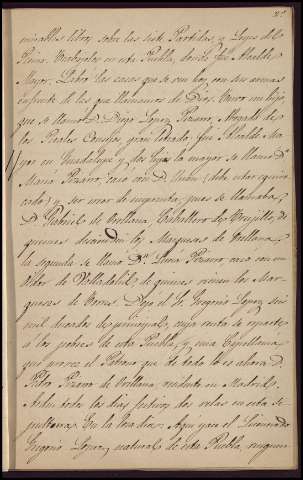 mirables libros, sobre las siete Partidas, y Leyes del
Reino. Trabajolos en esta Puebla, donde fue Alcalde
Mayor. Labró las casas que se ven hoy con sus armas
enfrente de las que llamamos de Dios. Tuvo un hijo
que se llamó D. Diego Lopez Pizarro, Abogado de
los Reales Consejos, gran letrado; fue Alcalde ma-
yor en Guadalupe y dos hijas la mayor se llamó Dª
Maria Pizarro, casó con D. Juan (debe estar equivo-
cado) y ser error de imprenta, pues se llamaba
D. Gabriel de Orellana, Caballero de Trujillo, de
quienes dicienden los Marqueses de Orellana,
la segunda se llamó Dª Pizarro casó con un
Oidor de Valladolid de quienes vienen los Mar-
queses de Dejó el Sr Gregorio Lopez, seis
mil ducados de principal, cuya renta se reparte
a los pobres de esta Puebla, y una Capellania
que provee el Patron que de todo lo es ahora D.
Pedro Pizarro de Orellana, residente en Madrid.
Arden todos los dias festivos dos velas en esta se-
pultura. En la losa dice: Aqui yace el Licenciado
Gregorio Lopez, natural de esta Puebla, rueguen